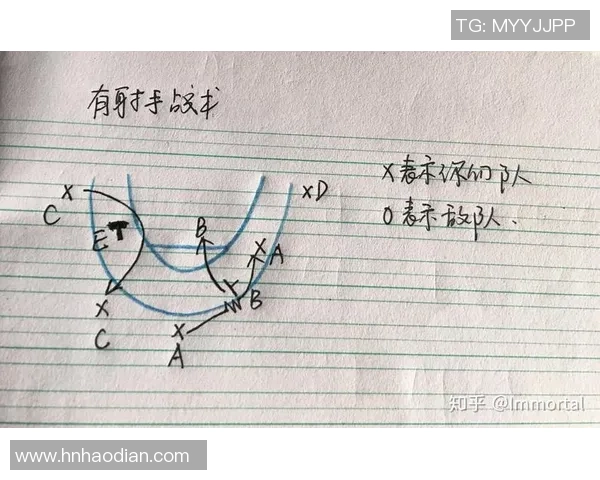 TG: MYYJJPP
有射手战术
X表示你们队
O表示敌队.
X
C
E
B
X
A
XD
X
C
B
X
A
知乎 @Immortal
www.hnhaodian.com